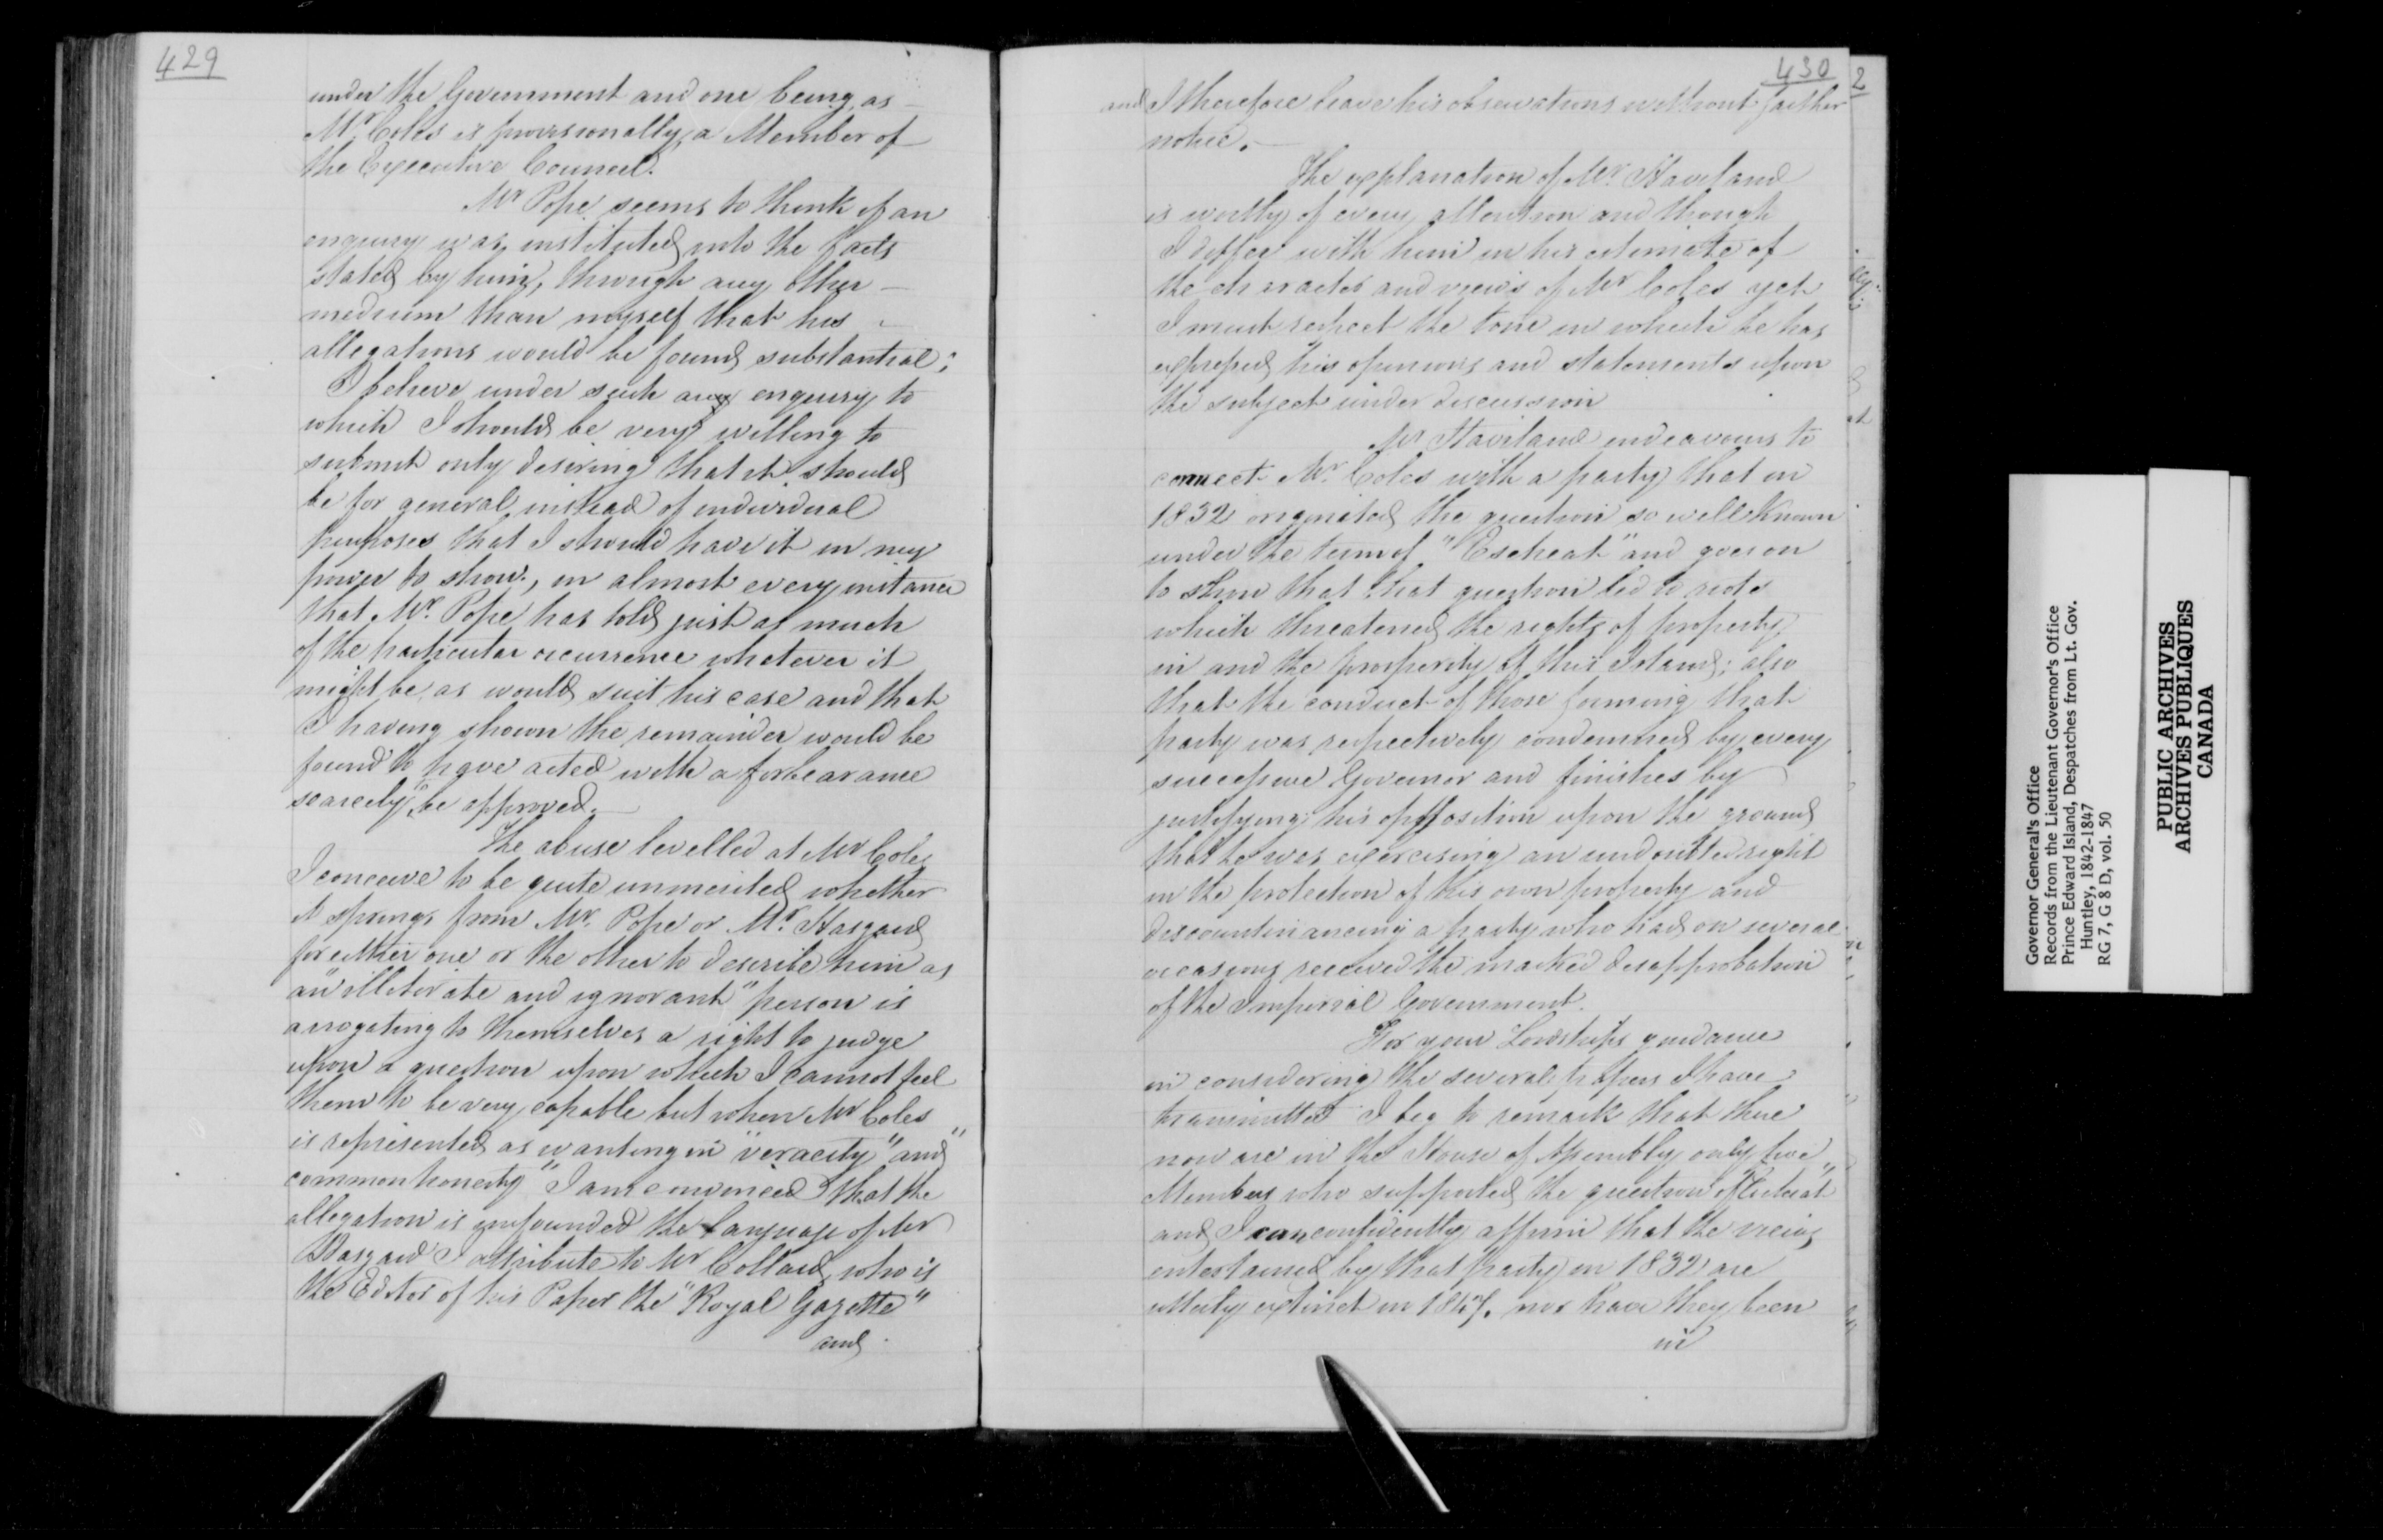 429
under the Government and one being, as
Mr. Coles is provisionally, a Member of
the Executive Council.
Mr Pope seems to think if an
enquiry was instituted into the facts
stated by him, through any other
medium than myself that his
allegations would be found substantial;
I believe under such any enquiry to
which I should be very willing to
submit only desiring that it should
be for general instead of individual
purposes that I should have it in my
power to show, in almost every instance
that Mr. Pope has told just as much
of the particular occurrence whatever it
might be, as would suit his case and that
I having shown the remainder would be
found to have acted with a forbearance
scarcely to be approved.
The abuse levelled at Mr Coles
I conceive to be quite unmerited whether
it springs from Mr. Pope or Mr. Haszard
for either one or the other to describe him as
an "illiterate and ignorant" person is
arrogating to themselves a right to judge
upon a question upon which I cannot feel
them to be very capable but when Mr Coles
is represented as wanting in "veracity" and "
common honesty" I am convinced that the
allegation is unfounded the language of Mr
Haszard I attribute to Mr Collard, who is
the Editor of his Paper the "Royal Gazette"
and
430
and I therefore leave his observations without further
notice.
The explanation of Mr. Haviland
is worthy of every attention and though
I differ with him in his estimate of
the character and views of Mr Coles yet
I must respect the tone in which he has
expressed his opinions and statements upon
the subject under discussion
Mr Haviland endeavours to
connect Mr. Coles with a party that in
1832 originated the question so well known
under the term of "Escheat" and goes on
to show that that question led to riots
which threatened the rights of property
in and the prosperity of this Island; also
that the conduct of those forming that
party was respectively condemned by every
successive Governor and finishes by
justifying his opposition upon the ground
that he was exercising an undoubted right
in the protection of his own property and
discountenancing a party who had on several
occasions received the marked disapprobation
of the Imperial Government.
For your Lordship's guidance
in considering the several papers I have
transmitted I beg to remark that there
now are in the House of Assembly only five
Members who supported the question of "Escheat"
and I can confidently affirm that the views
entertained by that party in 1832 are
utterly extinct in 1847, nor have they been
in
2
Governor General's Office
Records from the Lieutenant Governor's Office
Prince Edward Island, Despatches from Lt. Gov.
Huntley, 1842-1847
RG 7, G 8 D, vol. 50
PUBLIC ARCHIVES
ARCHIVES PUBLIQUES
CANADA